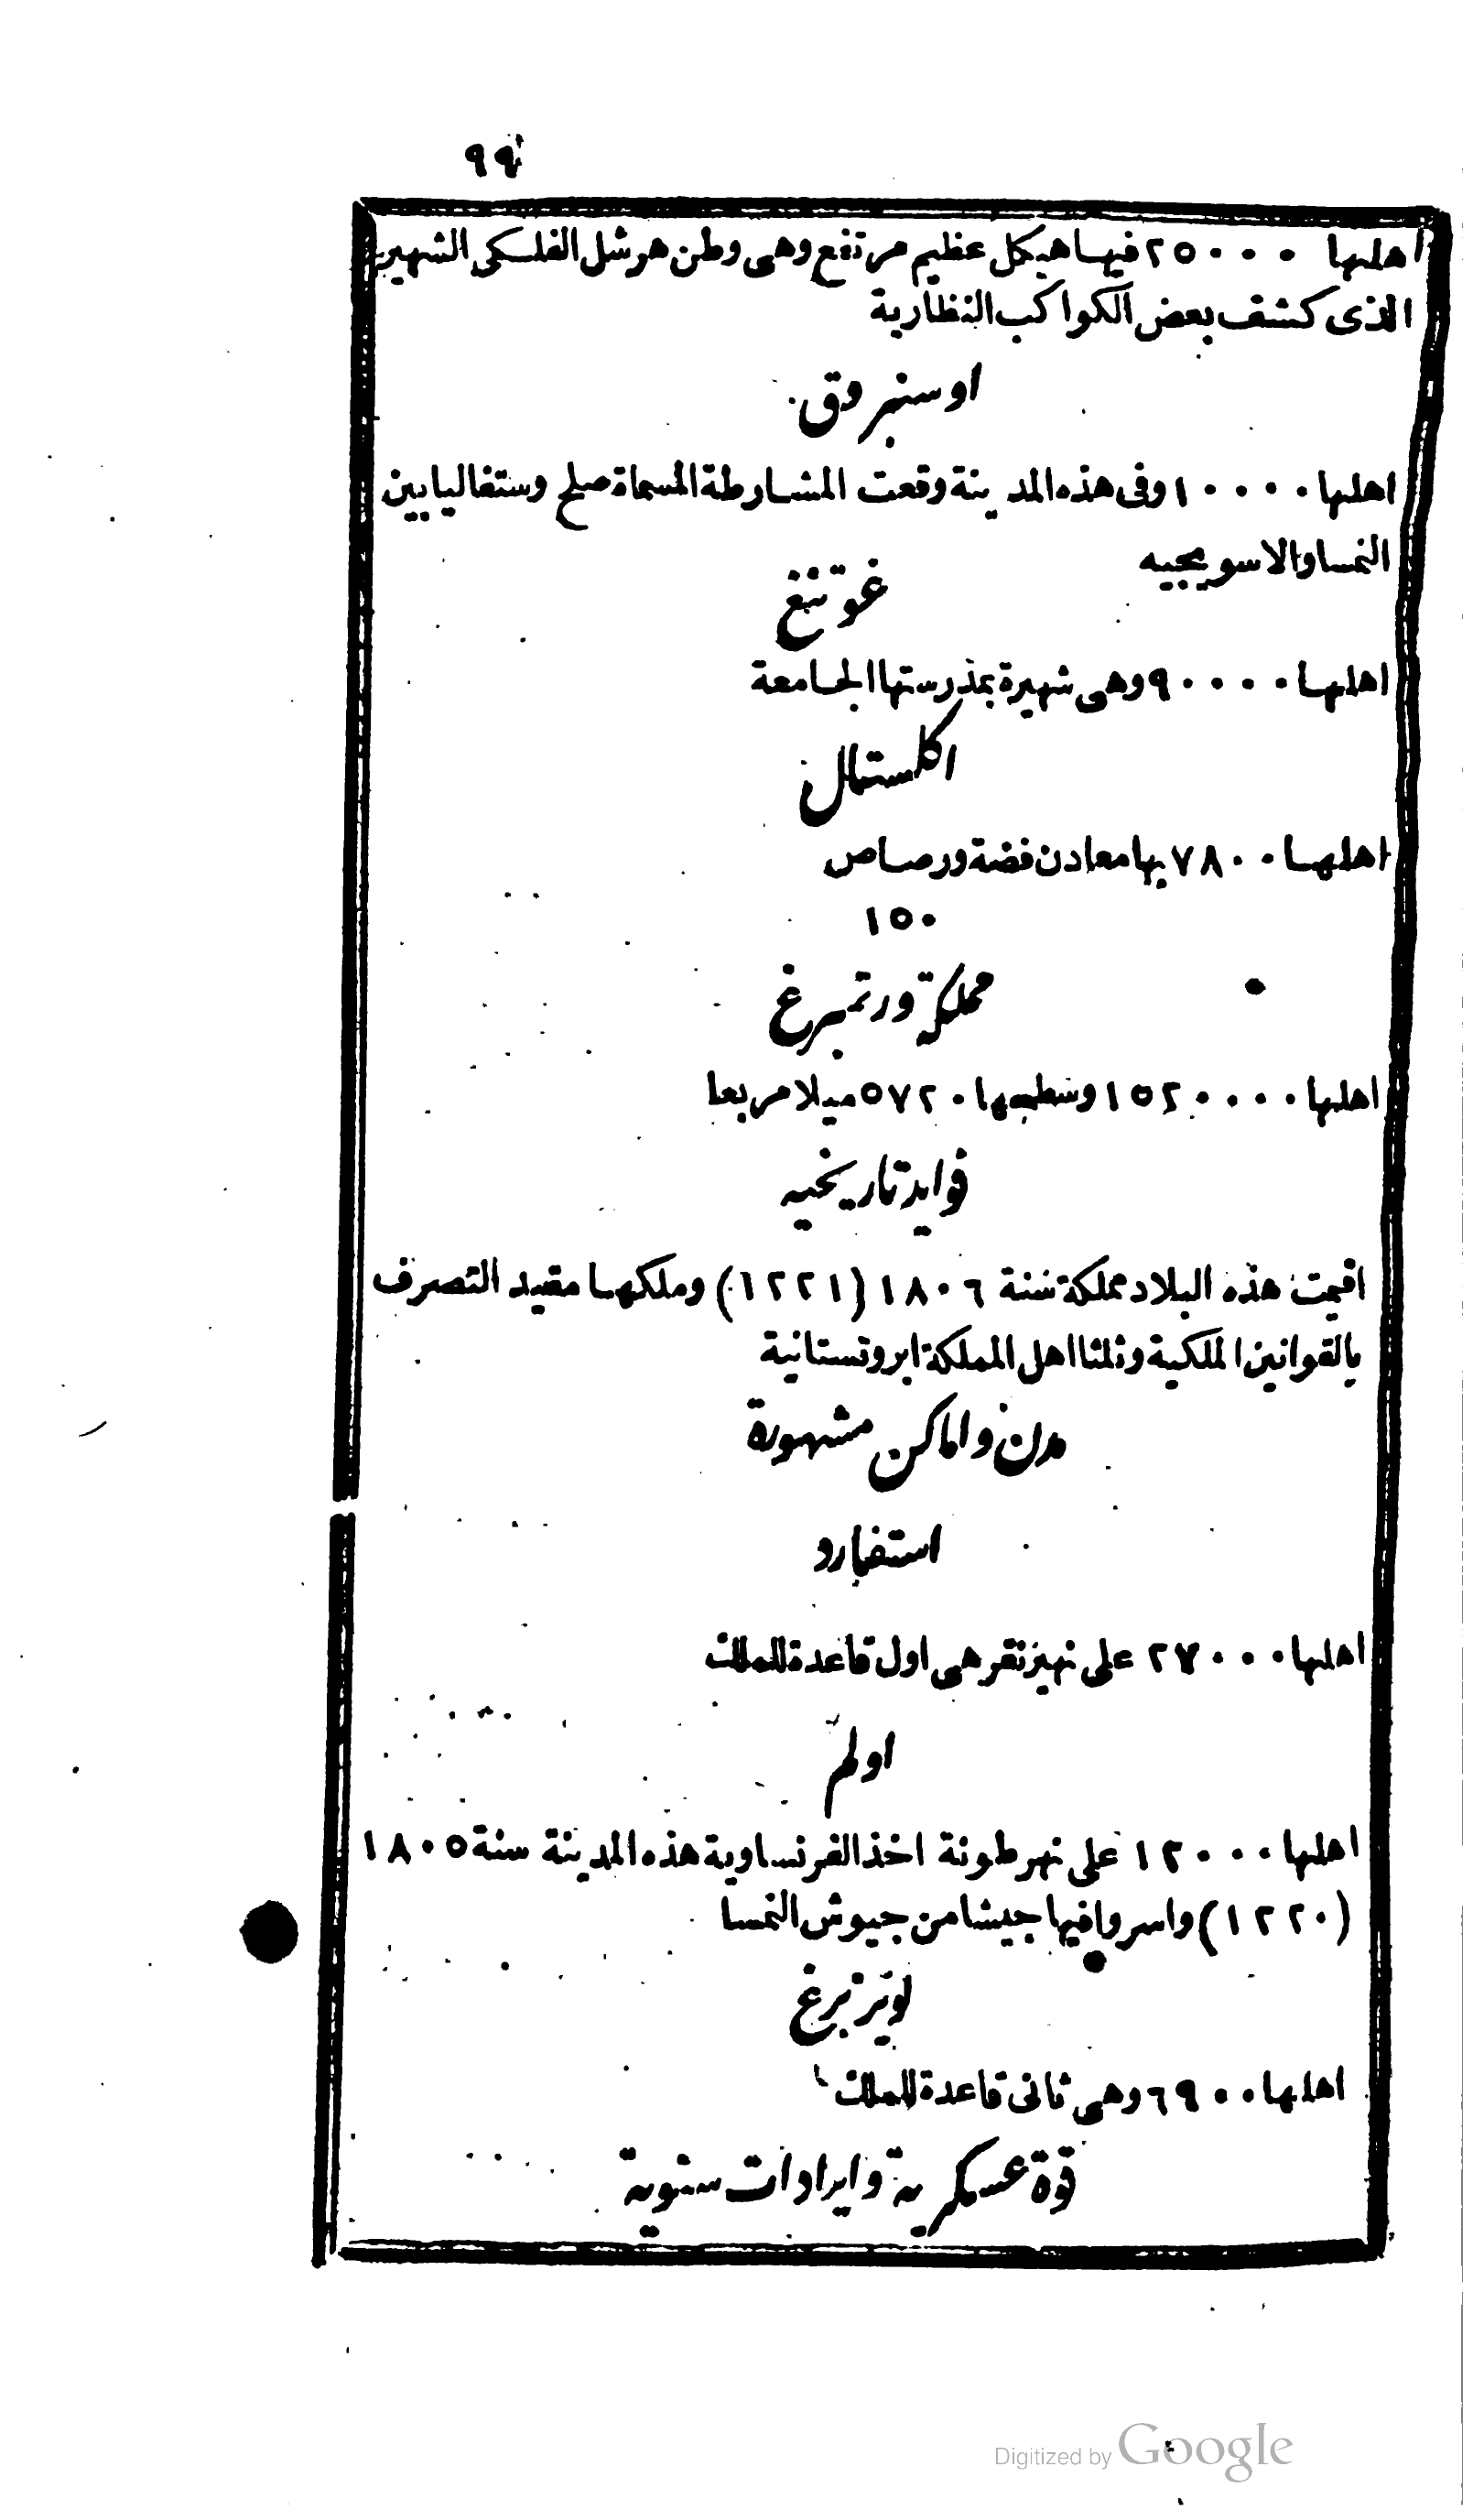 ٩٩
اهلها ٢٥٠٠٠ فيها هيكل عظيم مرتفع وهى وطن هرشل الفلكى الشهير
الذى كشف بعض الكواكب النظارية
اوسنبروق
اهلها ١٠٠٠٠ وفى هذه المدينة وقعت المشارطة المسماة صلح وستفاليا بين
النمسا والاسويجيه
غوتنغ
اهلها ٩٠٠٠٠ وهى شهيرة بمدرستها الجامعة
اكلستال
اهلها ٧٨٠٠ بها معادن فضة ورصاص
١٥٠
مملكة ورتمبرغ
اهلها ١٥٢٠٠٠٠ وسطحها ٥٧٢٠ ميلا مربعا
فوايد تاريخيه
اقيمت هذه البلاد مملكة سنة ١٨٠٦ (١٢٢١) وملكها مقيد التصرف
بالقوانين الملكية وثلثا اهل المملكة ابروتستانية
مدن واماكن مشهورة
استغارد
اهلها ٢٧٠٠٠ على نهر نقر هى اول قاعدة للملك
اولم
اهلها ١٢٠٠٠ على نهر طونة اخذ الفرنساوية هذه المدينة سنة ١٨٠٥
(١٢٢٠) واسروا فيها جيشا من جيوش النمسا
لويزبرغ
اهلها ٦٩٠٠ وهى ثانى قاعدة للملك
قوة عسكرية وايرادات سنوية
Digitized by Google